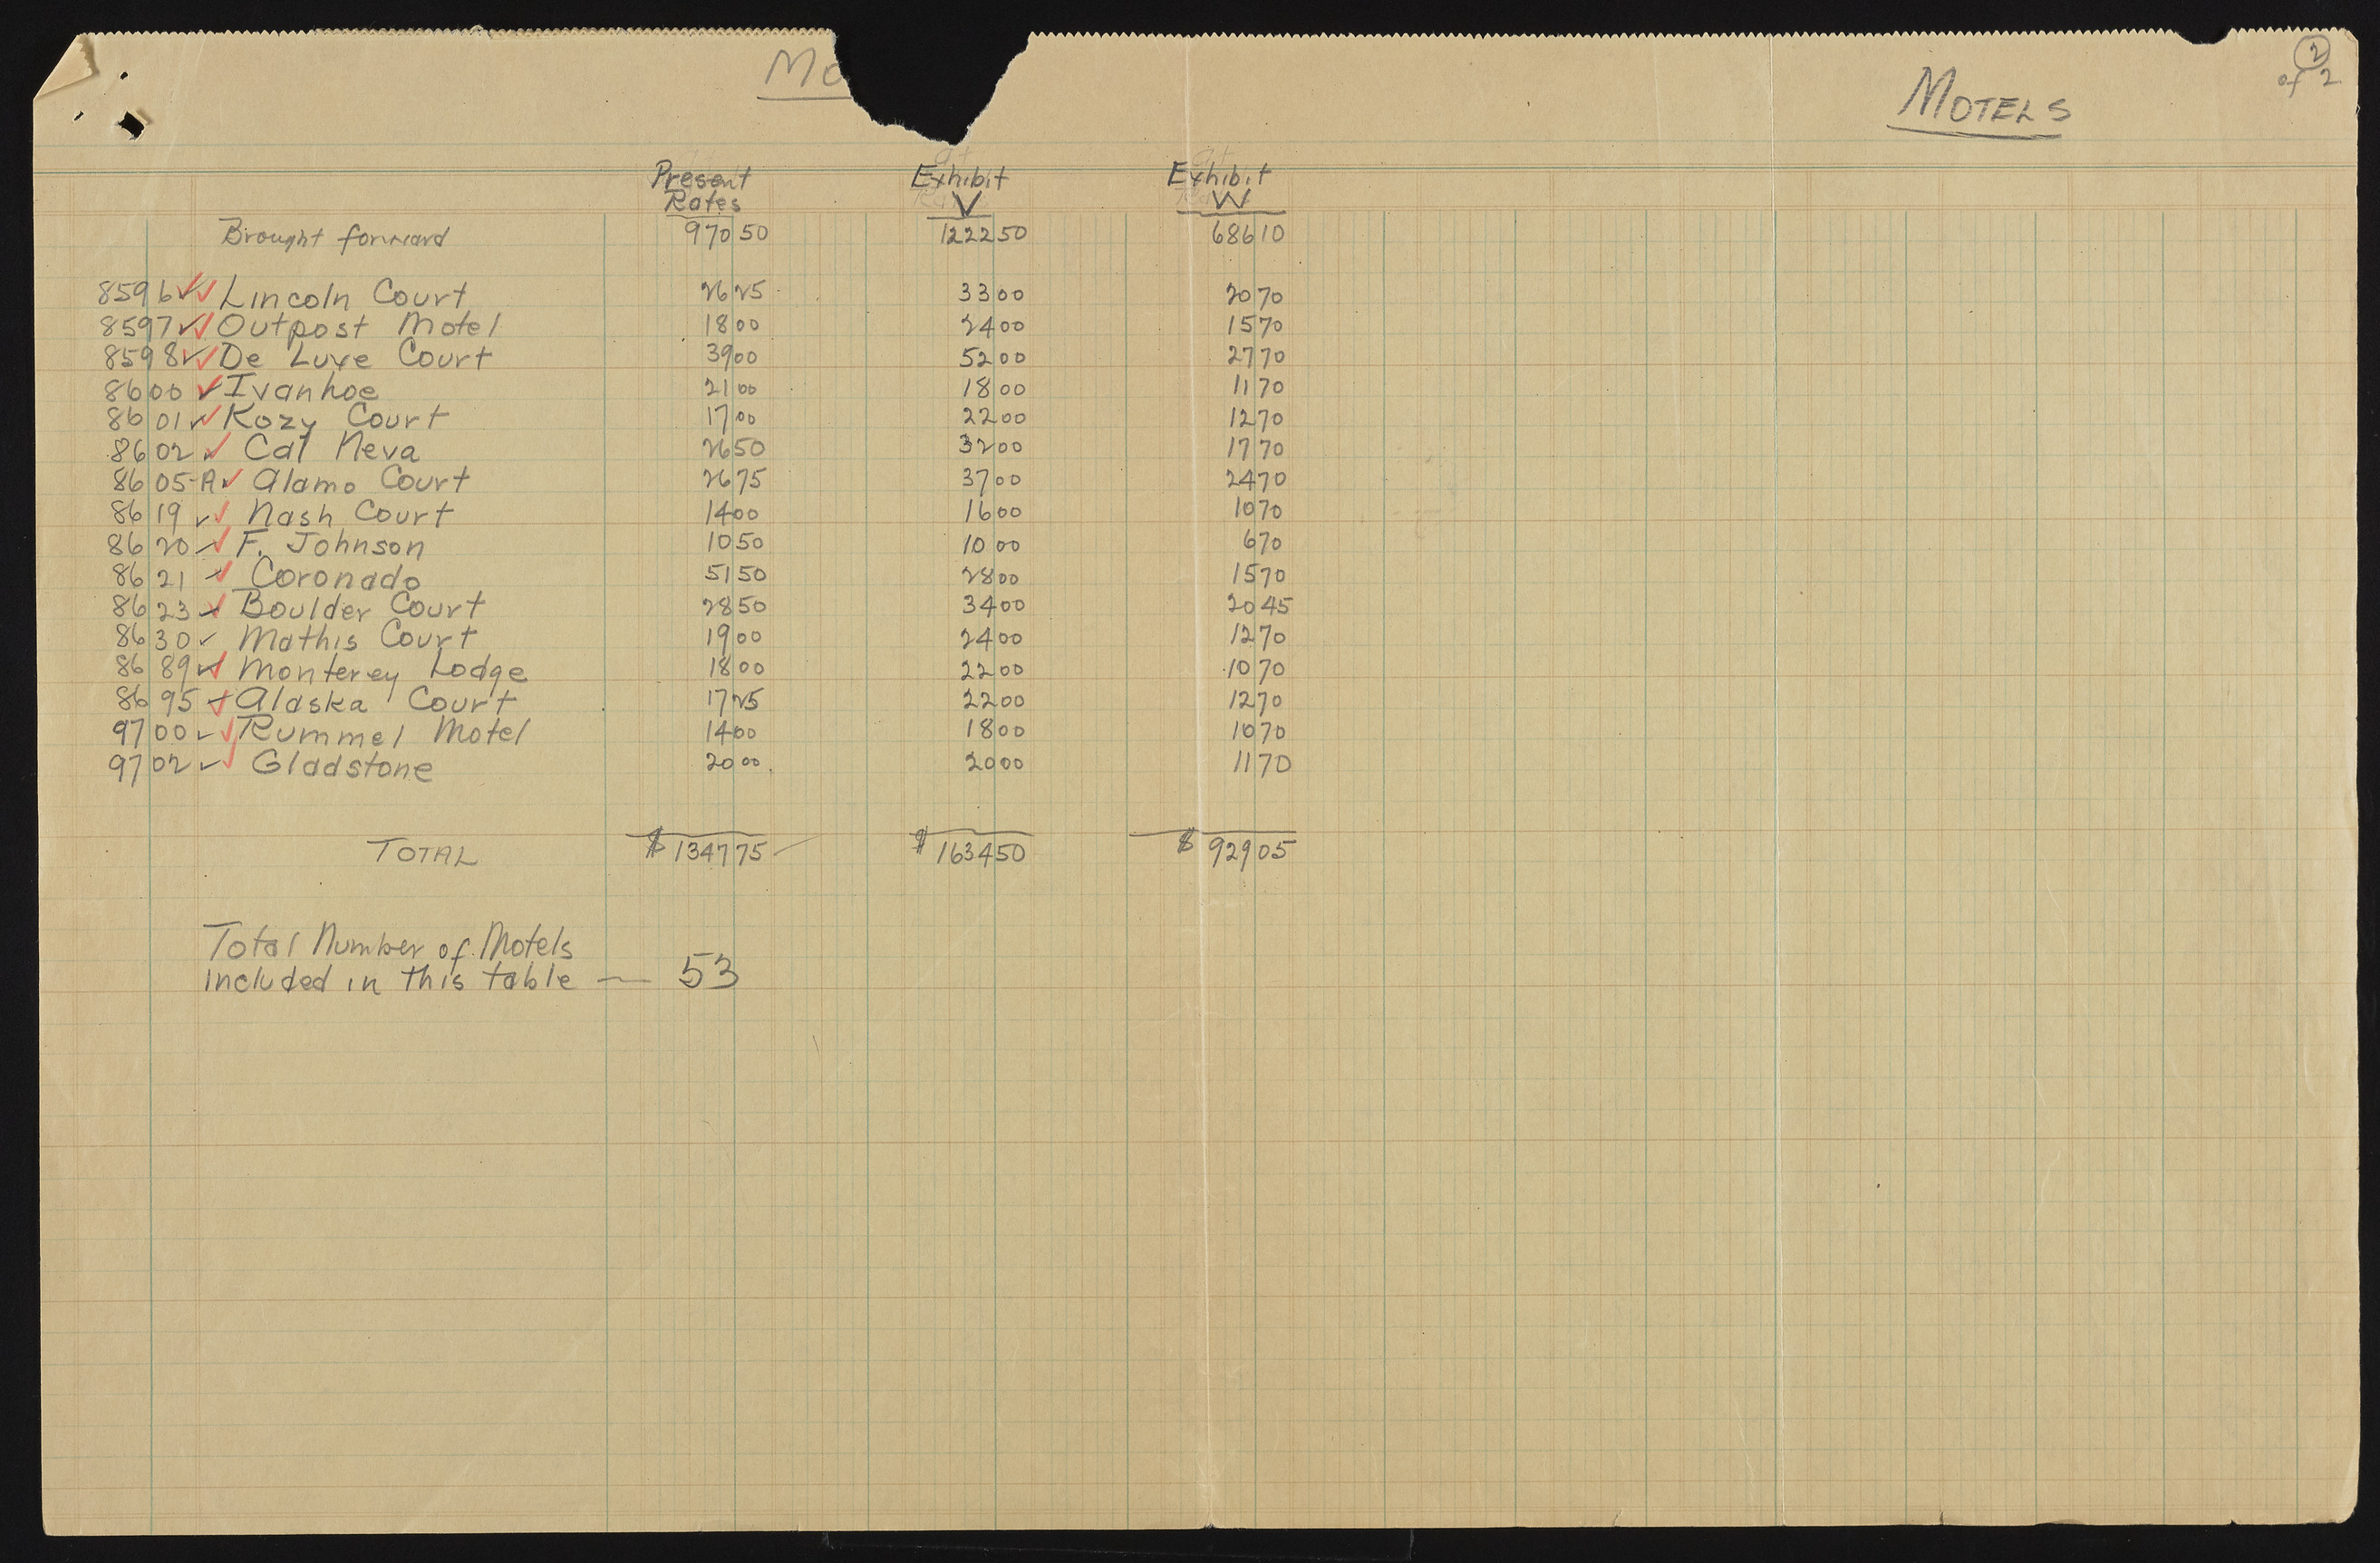 Mo
MOTELS
2 of 2
Present Rates Exhibit V Exhibit W
Brought forward 970 50 1222 50 686 10
8596 Lincoln Court 26 25 33 00 20 70
8597 Outpost Motel 18 00 24 00 15 70
8598 De Luxe Court 39 00 52 00 27 70
8600 Ivanhoe 21 00 18 00 11 70
8601 Kozy Court 17 00 22 00 12 70
8602 Cal Neva 26 50 32 00 17 70
8605-A Alamo Court 26 75 37 00 24 70
8619 Nash Court 14 00 16 00 10 70
8620 F. Johnson 10 50 10 00 6 70
8621 Coronado 51 50 28 00 15 70
8623 Boulder Court 28 50 34 00 20 45
8630 Mathis Court 19 00 24 00 12 70
8689 Monterey Lodge 18 00 22 00 10 70
8695 Alaska Court 17 25 22 00 12 70
9700 Rummel Motel 14 00 18 00 10 70
9702 Gladstone 20 00 20 00 11 70
TOTAL $ 1347 75 $ 1634 50 $ 929 05
Total Number of Motels
included in this table — 53